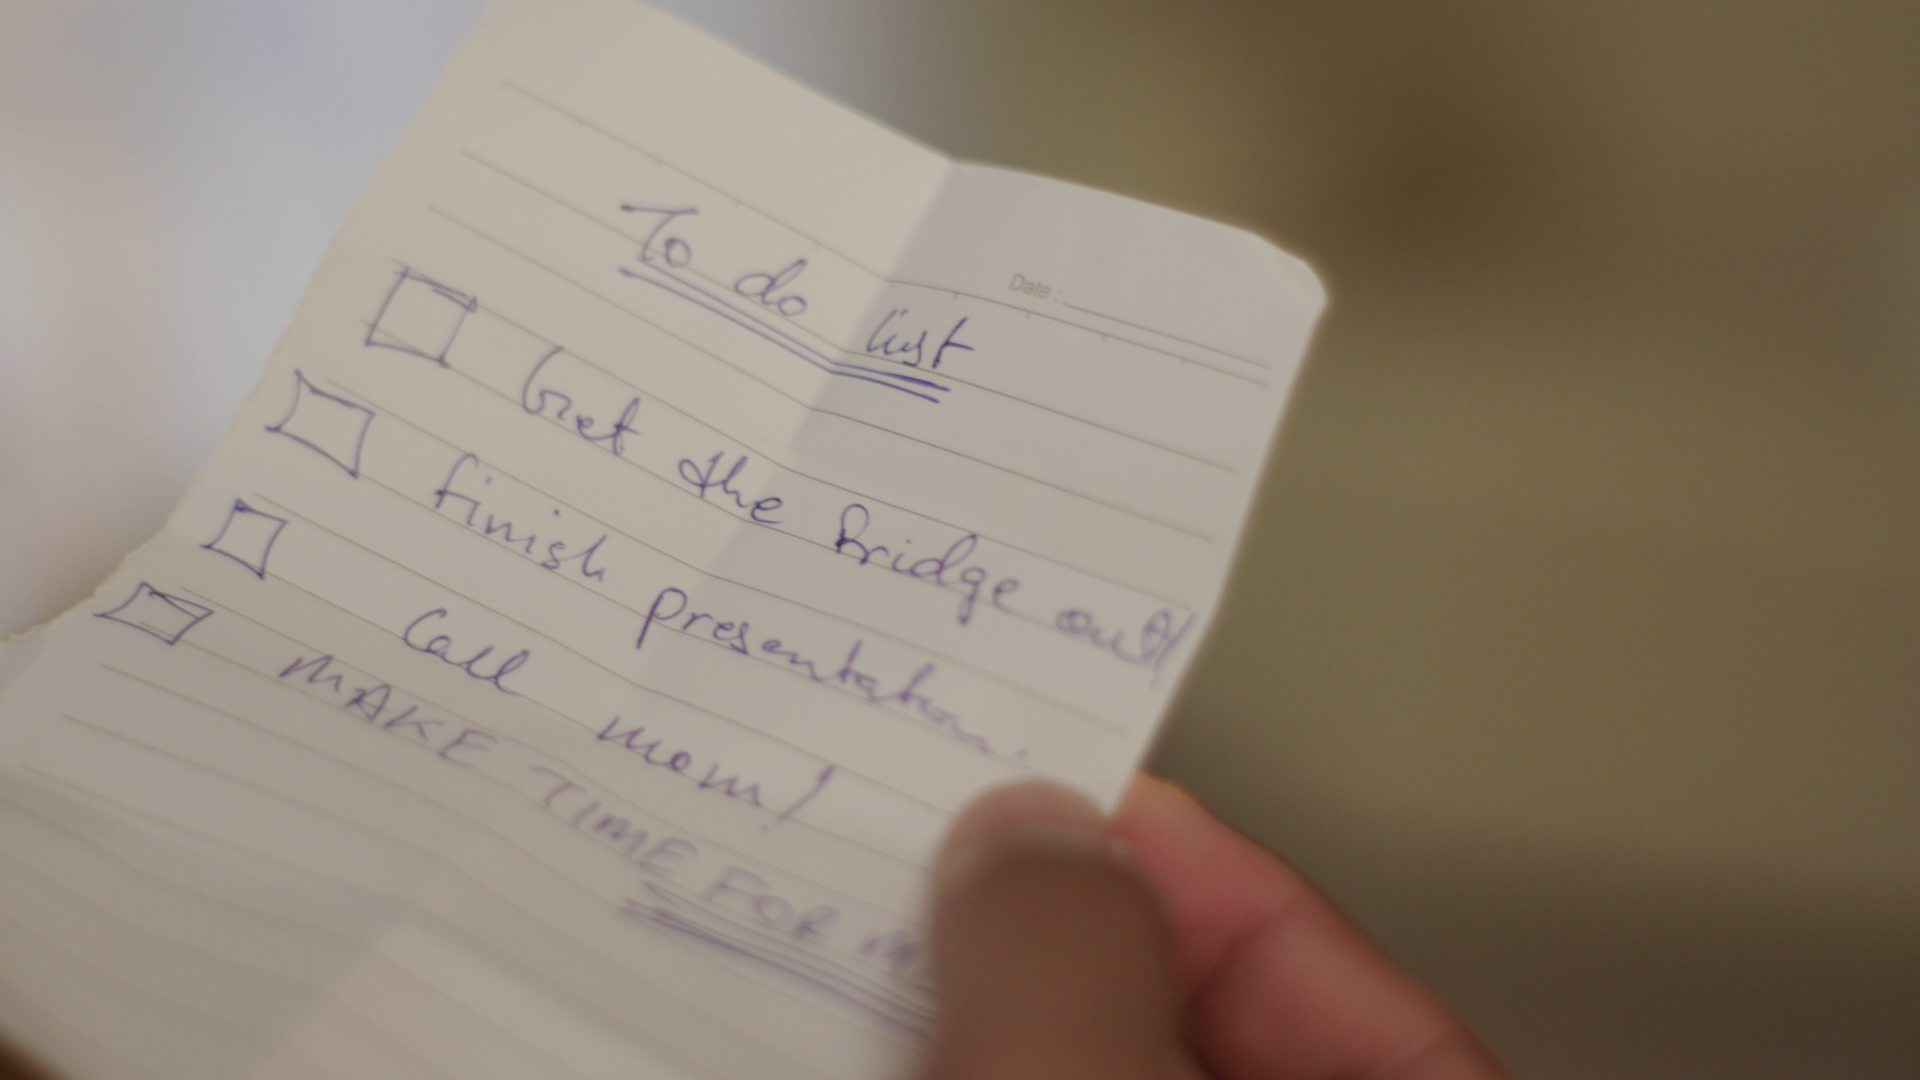 Date :
To do list
Get the Bridge out!
finish presentation.
Call mom!
MAKE TIME FOR